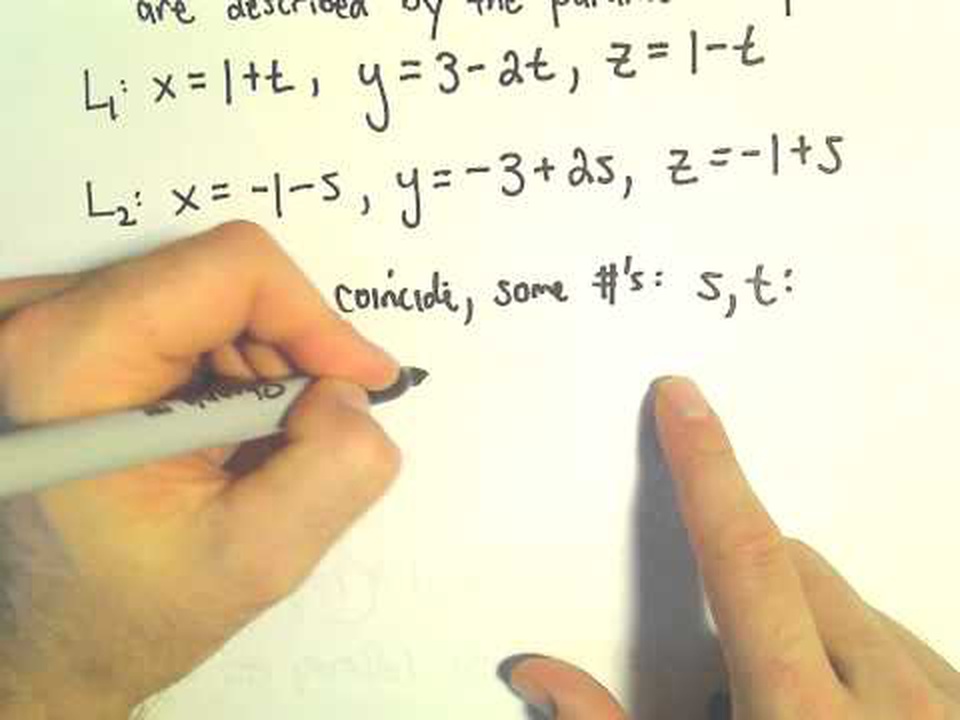 are described by the
L₁: x = 1+t, y = 3-2t, z = 1-t
L₂: x = -1-s, y = -3+2s, z = -1+s
coincide, some #'s: s, t: